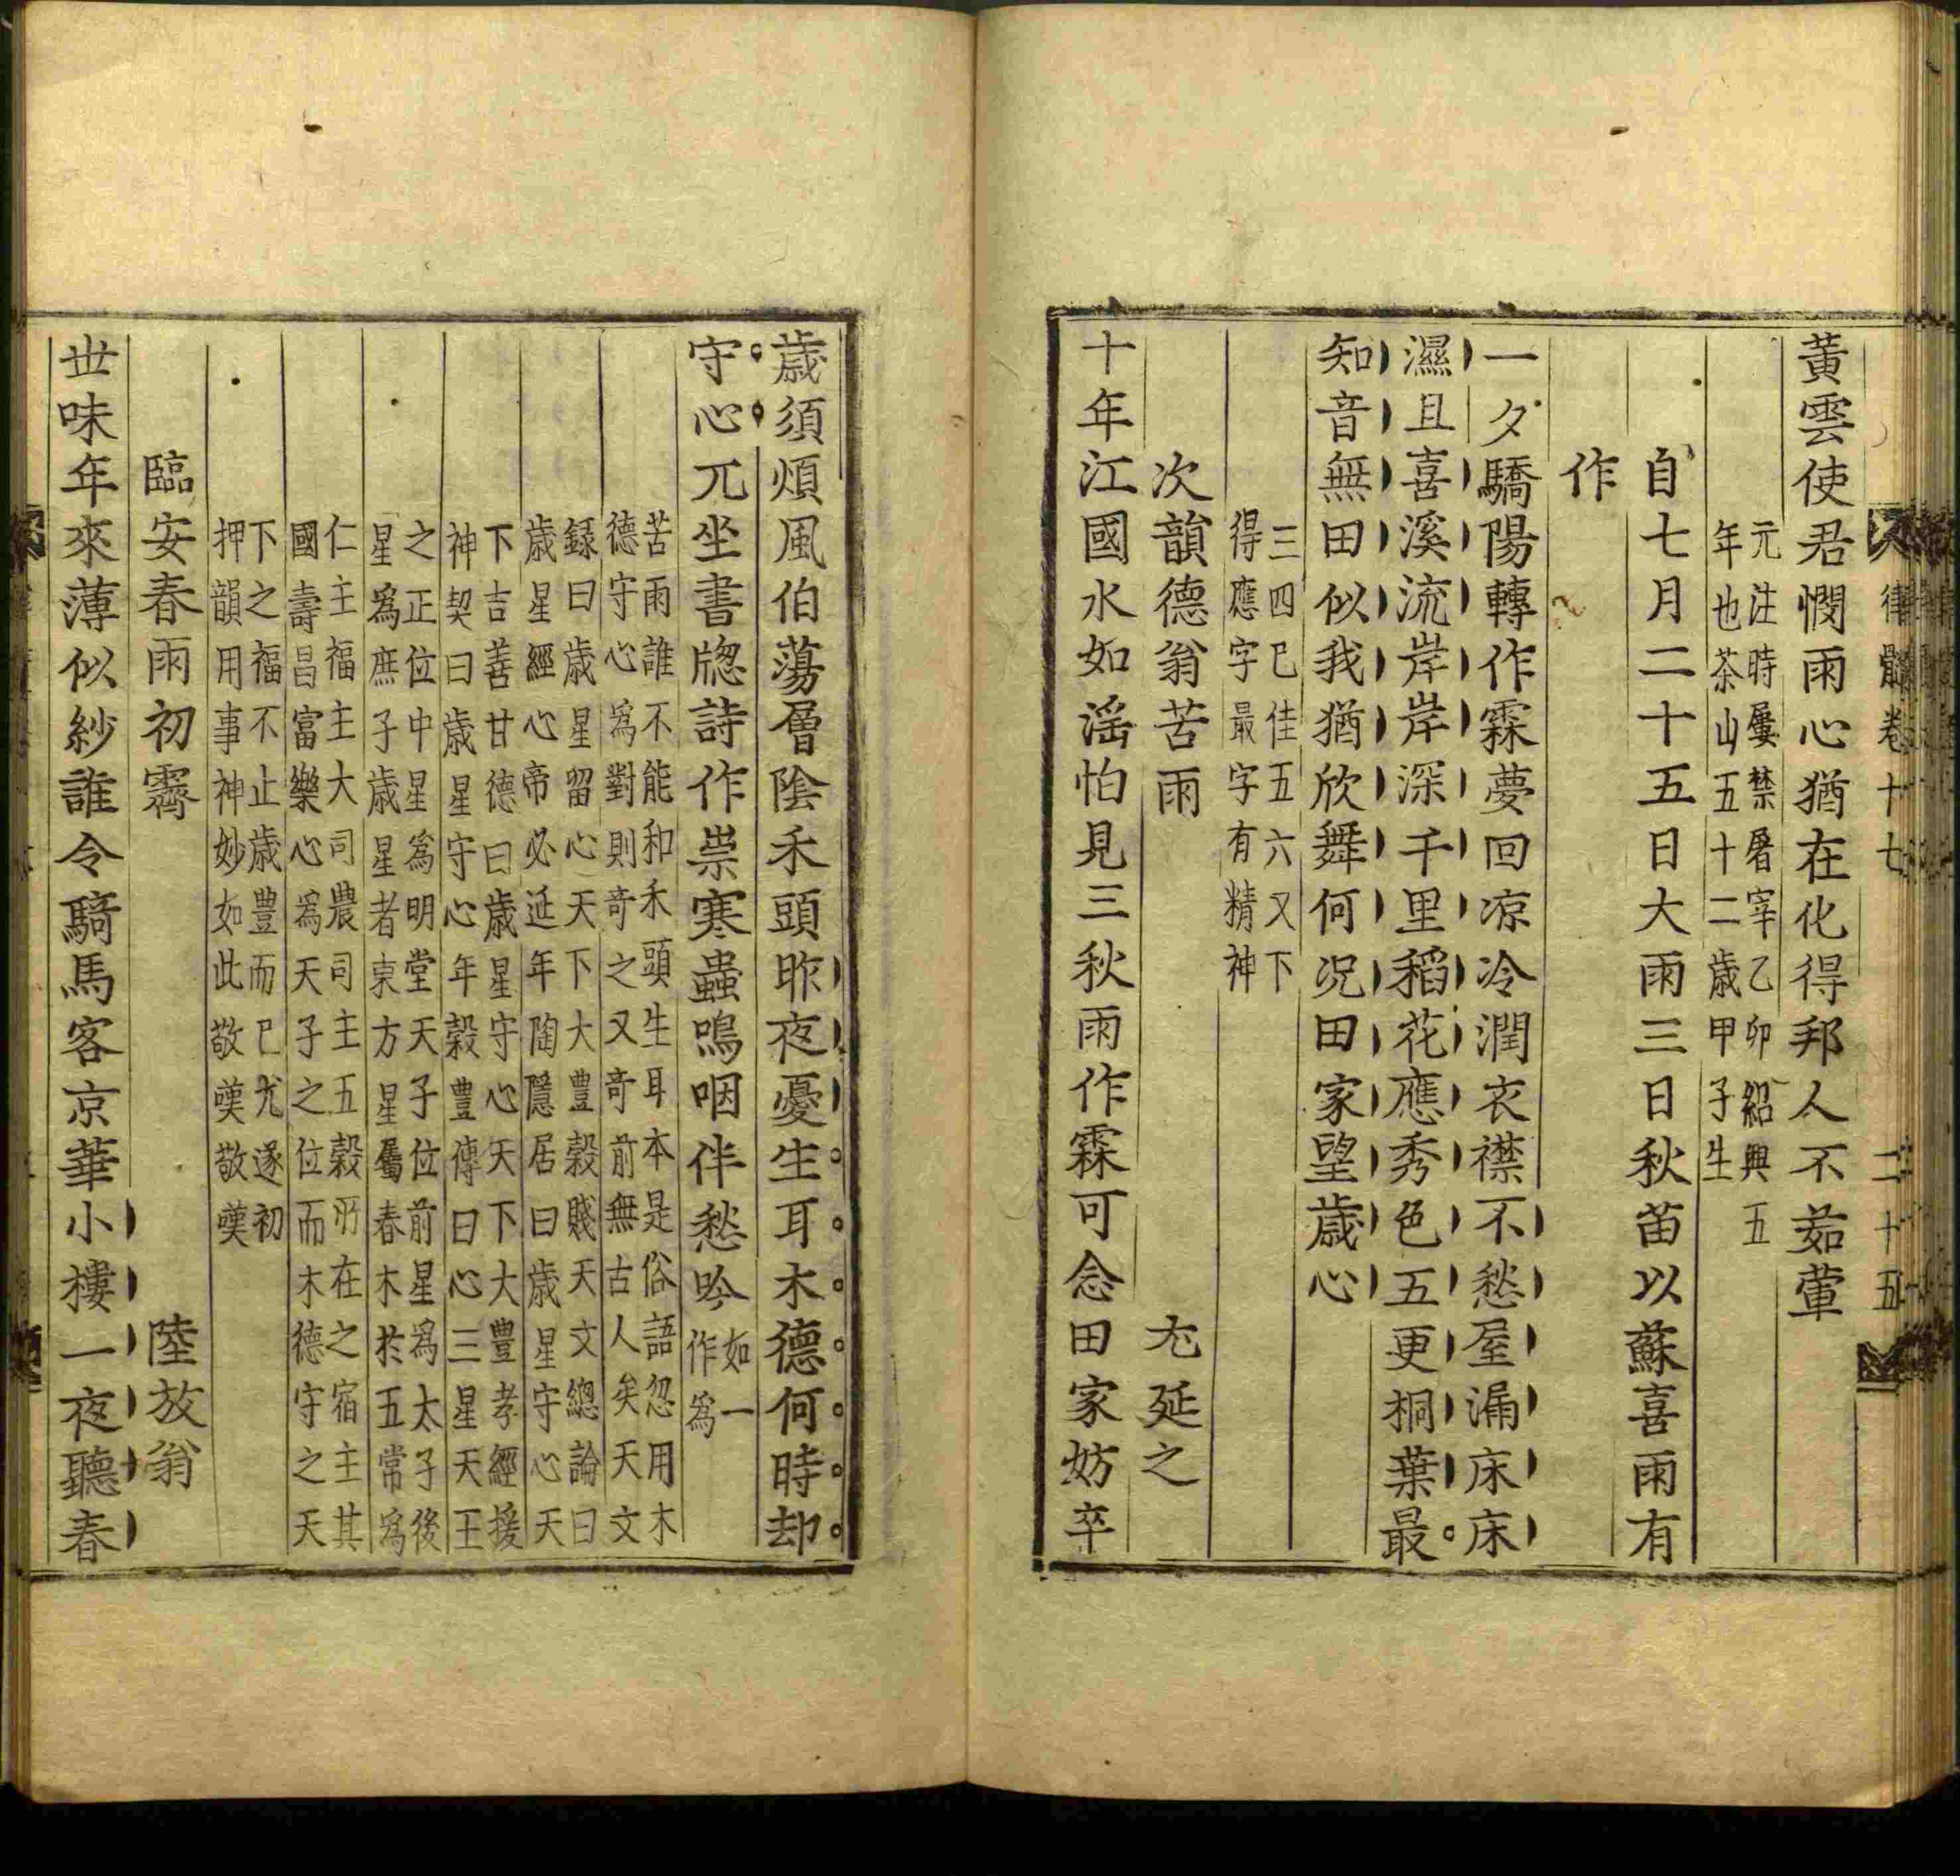 律髓卷十七 二十五
黃雲使君憫雨心猶在化得邦人不茹葷
元注時屢禁屠宰乙卯紹興五
年也茶山五十二歲甲子生
自七月二十五日大雨三日秋苗以蘇喜雨有
作
一夕驕陽轉作霖夢回凉冷潤衣襟不愁屋漏床床
濕且喜溪流岸岸深千里稻花應秀色五更桐葉最
知音無田似我猶欣舞何况田家望歲心
三四已佳五六又下
得應字最字有精神
次韻德翁苦雨 尤延之
十年江國水如滛怕見三秋雨作霖可念田家妨卒
歲須煩風伯蕩層陰禾頭昨夜憂生耳木德何時却
守心兀坐書牕詩作祟寒蟲鳴咽伴愁吟如一
作爲
苦雨誰不能和禾頭生耳本是俗語忽用木
德守心爲對則奇之又奇前無古人矣天文
録曰歲星留心天下大豊穀賤天文緫論曰
歲星經心帝必延年陶隱居曰歲星守心天
下吉善甘德曰歲星守心天下大豊孝經援
神契曰歲星守心年穀豊傳曰心三星天王
之正位中星爲明堂天子位前星爲太子後
星爲庶子歲星者東方星屬春木於五常爲
仁主福主大司農司主五穀所在之宿主其
國壽昌富樂心爲天子之位而木德守之天
下之福不止歲豊而已尤遂初
押韻用事神妙如此敬嘆敬嘆
臨安春雨初霽 陸放翁
丗味年來薄似紗誰令騎馬客京華小樓一夜聽春